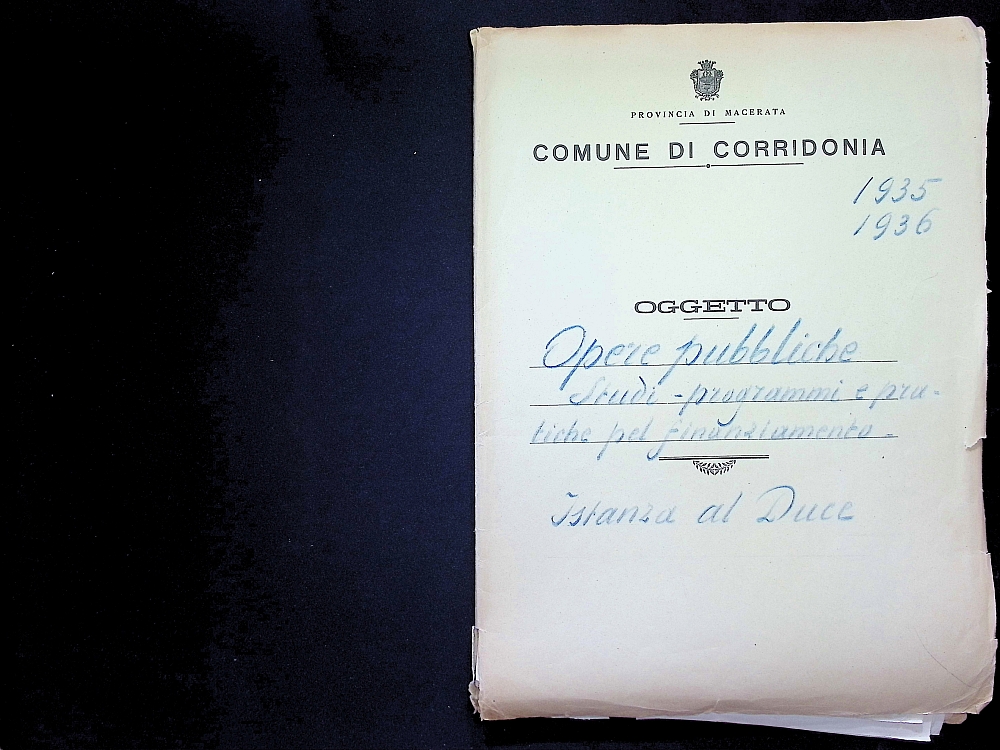 PROVINCIA DI MACERATA
COMUNE DI CORRIDONIA
1935
1936
OGGETTO
Opere pubbliche
Studi - programmi e pra-
tiche pel finanziamento -
Istanza al Duce